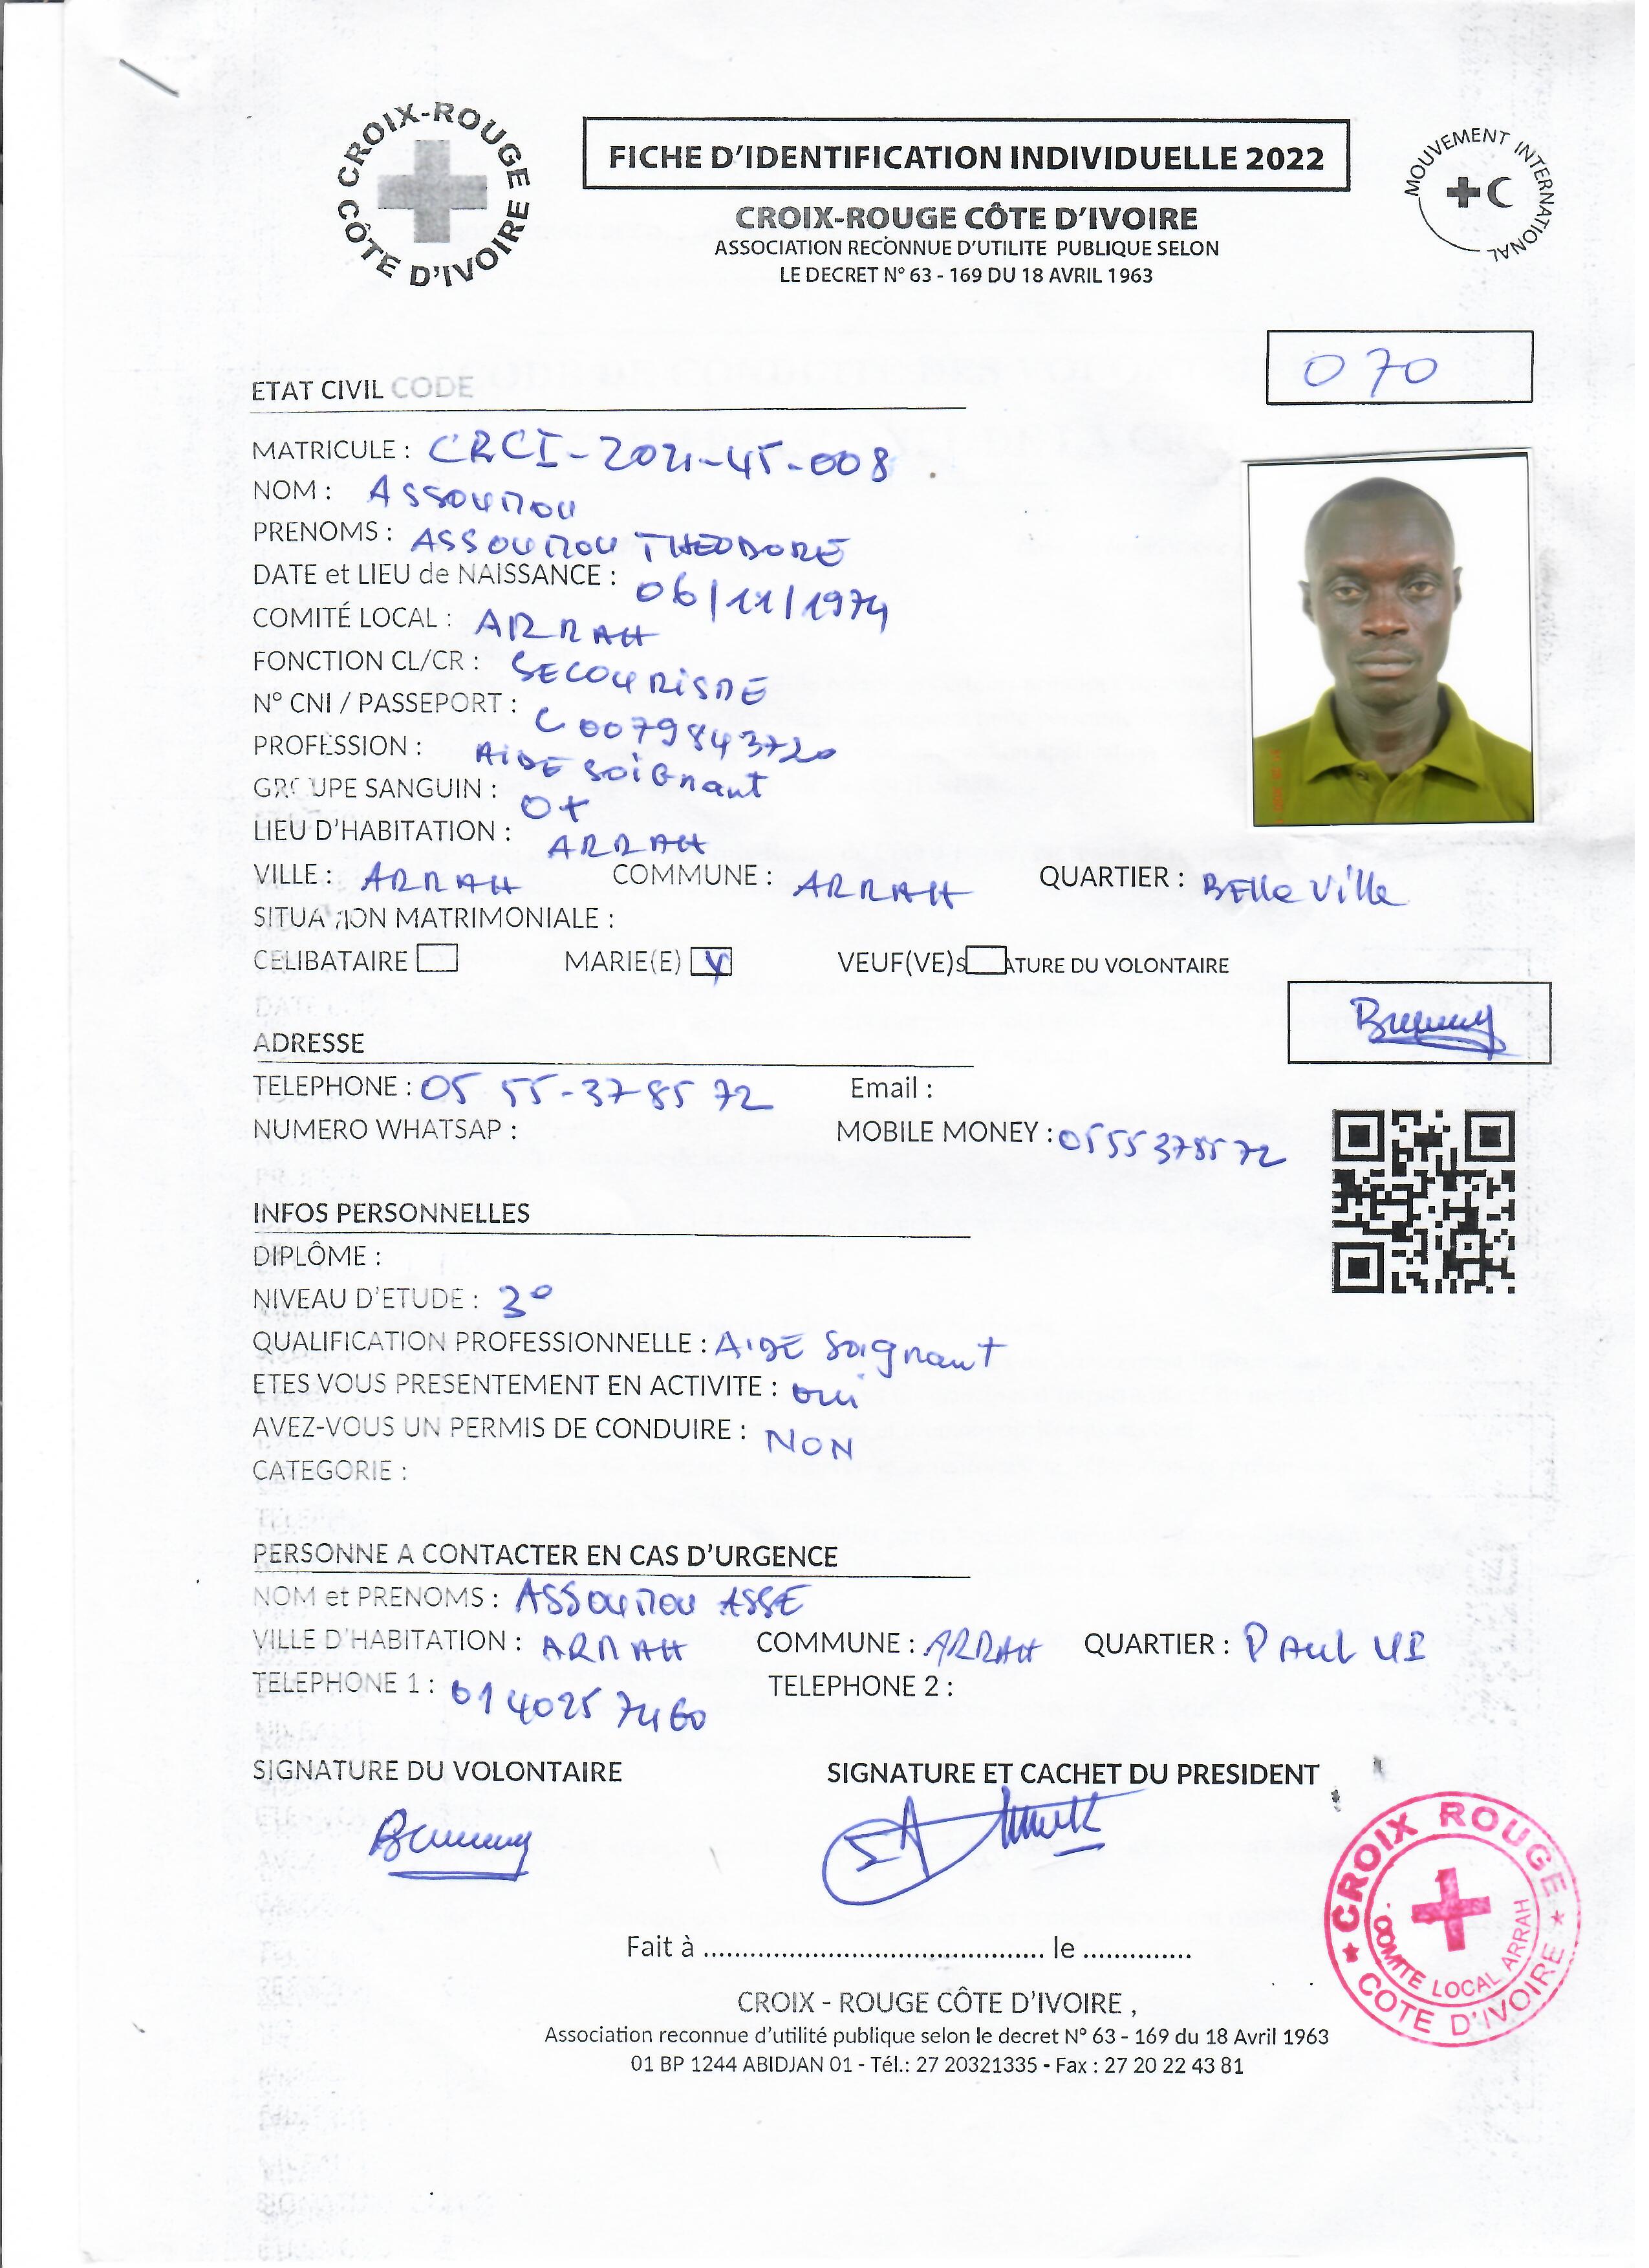 CROIX-ROUGE CÔTE D'IVOIRE
FICHE D'IDENTIFICATION INDIVIDUELLE 2022
CROIX-ROUGE CÔTE D'IVOIRE
ASSOCIATION RECONNUE D'UTILITE PUBLIQUE SELON
LE DECRET N° 63 - 169 DU 18 AVRIL 1963
MOUVEMENT INTERNATIONAL
070
ETAT CIVIL CODE
MATRICULE : CRCI-2021-45-008
NOM : ASSOUMOU
PRENOMS : ASSOUMOU THEODORE
DATE et LIEU de NAISSANCE : 06/11/1974
COMITÉ LOCAL : ARRAH
FONCTION CL/CR : SECOURISME
N° CNI / PASSEPORT : C0079843720
PROFESSION : AIDE Soignant
GROUPE SANGUIN : O+
LIEU D'HABITATION : ARRAH
VILLE : ARRAH COMMUNE : ARRAH QUARTIER : BElle Ville
SITUATION MATRIMONIALE :
CELIBATAIRE MARIE(E) VEUF(VE) SATURE DU VOLONTAIRE
ADRESSE
TELEPHONE : 05 55-378572 Email :
NUMERO WHATSAP : MOBILE MONEY : 0555378572
INFOS PERSONNELLES
DIPLÔME :
NIVEAU D'ETUDE : 3°
QUALIFICATION PROFESSIONNELLE : AIDE Soignant
ETES VOUS PRESENTEMENT EN ACTIVITE : oui
AVEZ-VOUS UN PERMIS DE CONDUIRE : NON
CATEGORIE :
PERSONNE A CONTACTER EN CAS D'URGENCE
NOM et PRENOMS : ASSOUMOU ASSE
VILLE D'HABITATION : ARRAH COMMUNE : ARRAH QUARTIER : PAUL VI
TELEPHONE 1 : 0140257460 TELEPHONE 2 :
SIGNATURE DU VOLONTAIRE SIGNATURE ET CACHET DU PRESIDENT
CROIX ROUGE
COMITE LOCAL ARRAH
COTE D'IVOIRE
Fait à ............................................ le ..............
CROIX - ROUGE CÔTE D'IVOIRE ,
Association reconnue d'utilité publique selon le decret N° 63 - 169 du 18 Avril 1963
01 BP 1244 ABIDJAN 01 - Tél.: 27 20321335 - Fax : 27 20 22 43 81